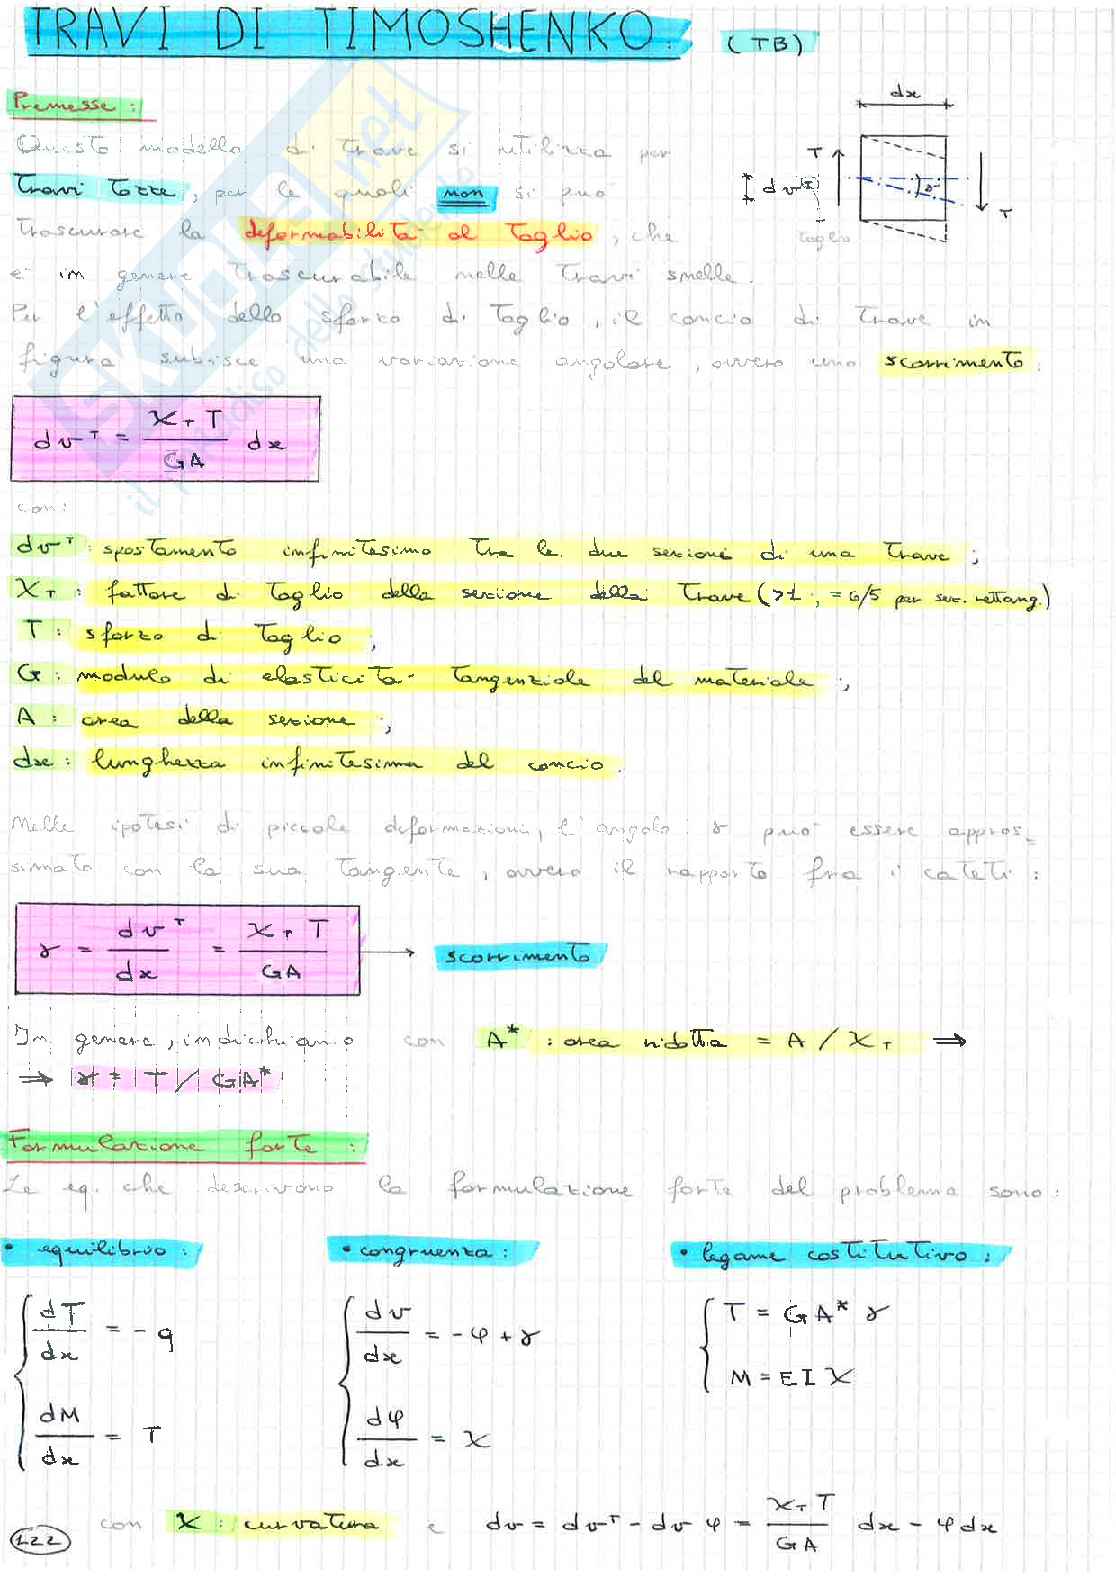 TRAVI DI TIMOSHENKO: (TB)
Premesse:
Questo modello di trave si utilizza per
travi tozze, per le quali non si può
trascurare la deformabilità al taglio, che
e' in genere trascurabile nelle travi snelle.
Per l'effetto dello sforzo di taglio, il concio di trave in
figura subisce una variazione angolare, ovvero uno scorrimento:
dx
T
dv^T
γ
T
taglio
dv^T = χ_T T / GA dx
con:
dv^T: spostamento infinitesimo tra le due sezioni di una trave;
χ_T: fattore di taglio della sezione della trave (>1; = 6/5 per sez. rettang.)
T: sforzo di taglio;
G: modulo di elasticita' tangenziale del materiale;
A: area della sezione;
dx: lunghezza infinitesima del concio.
Nelle ipotesi di piccole deformazioni, l'angolo γ puo' essere appros=
simato con la sua tangente, ovvero il rapporto fra i cateti:
γ = dv^T / dx = χ_T T / GA → scorrimento
In genere, indichiamo con A* : area ridotta = A / χ_T ⇒
⇒ γ = T / GA*
Formulazione forte:
Le eq. che descrivono la formulazione forte del problema sono:
• equilibrio: • congruenza: • legame costitutivo:
dT/dx = -q dv/dx = -φ + γ T = GA* γ
dM/dx = T dφ/dx = χ M = EI χ
con χ: curvatura e dv = dv^T - dv φ = χ_T T / GA dx - φ dx
122
SKUOLA.net
il paradiso dello studente